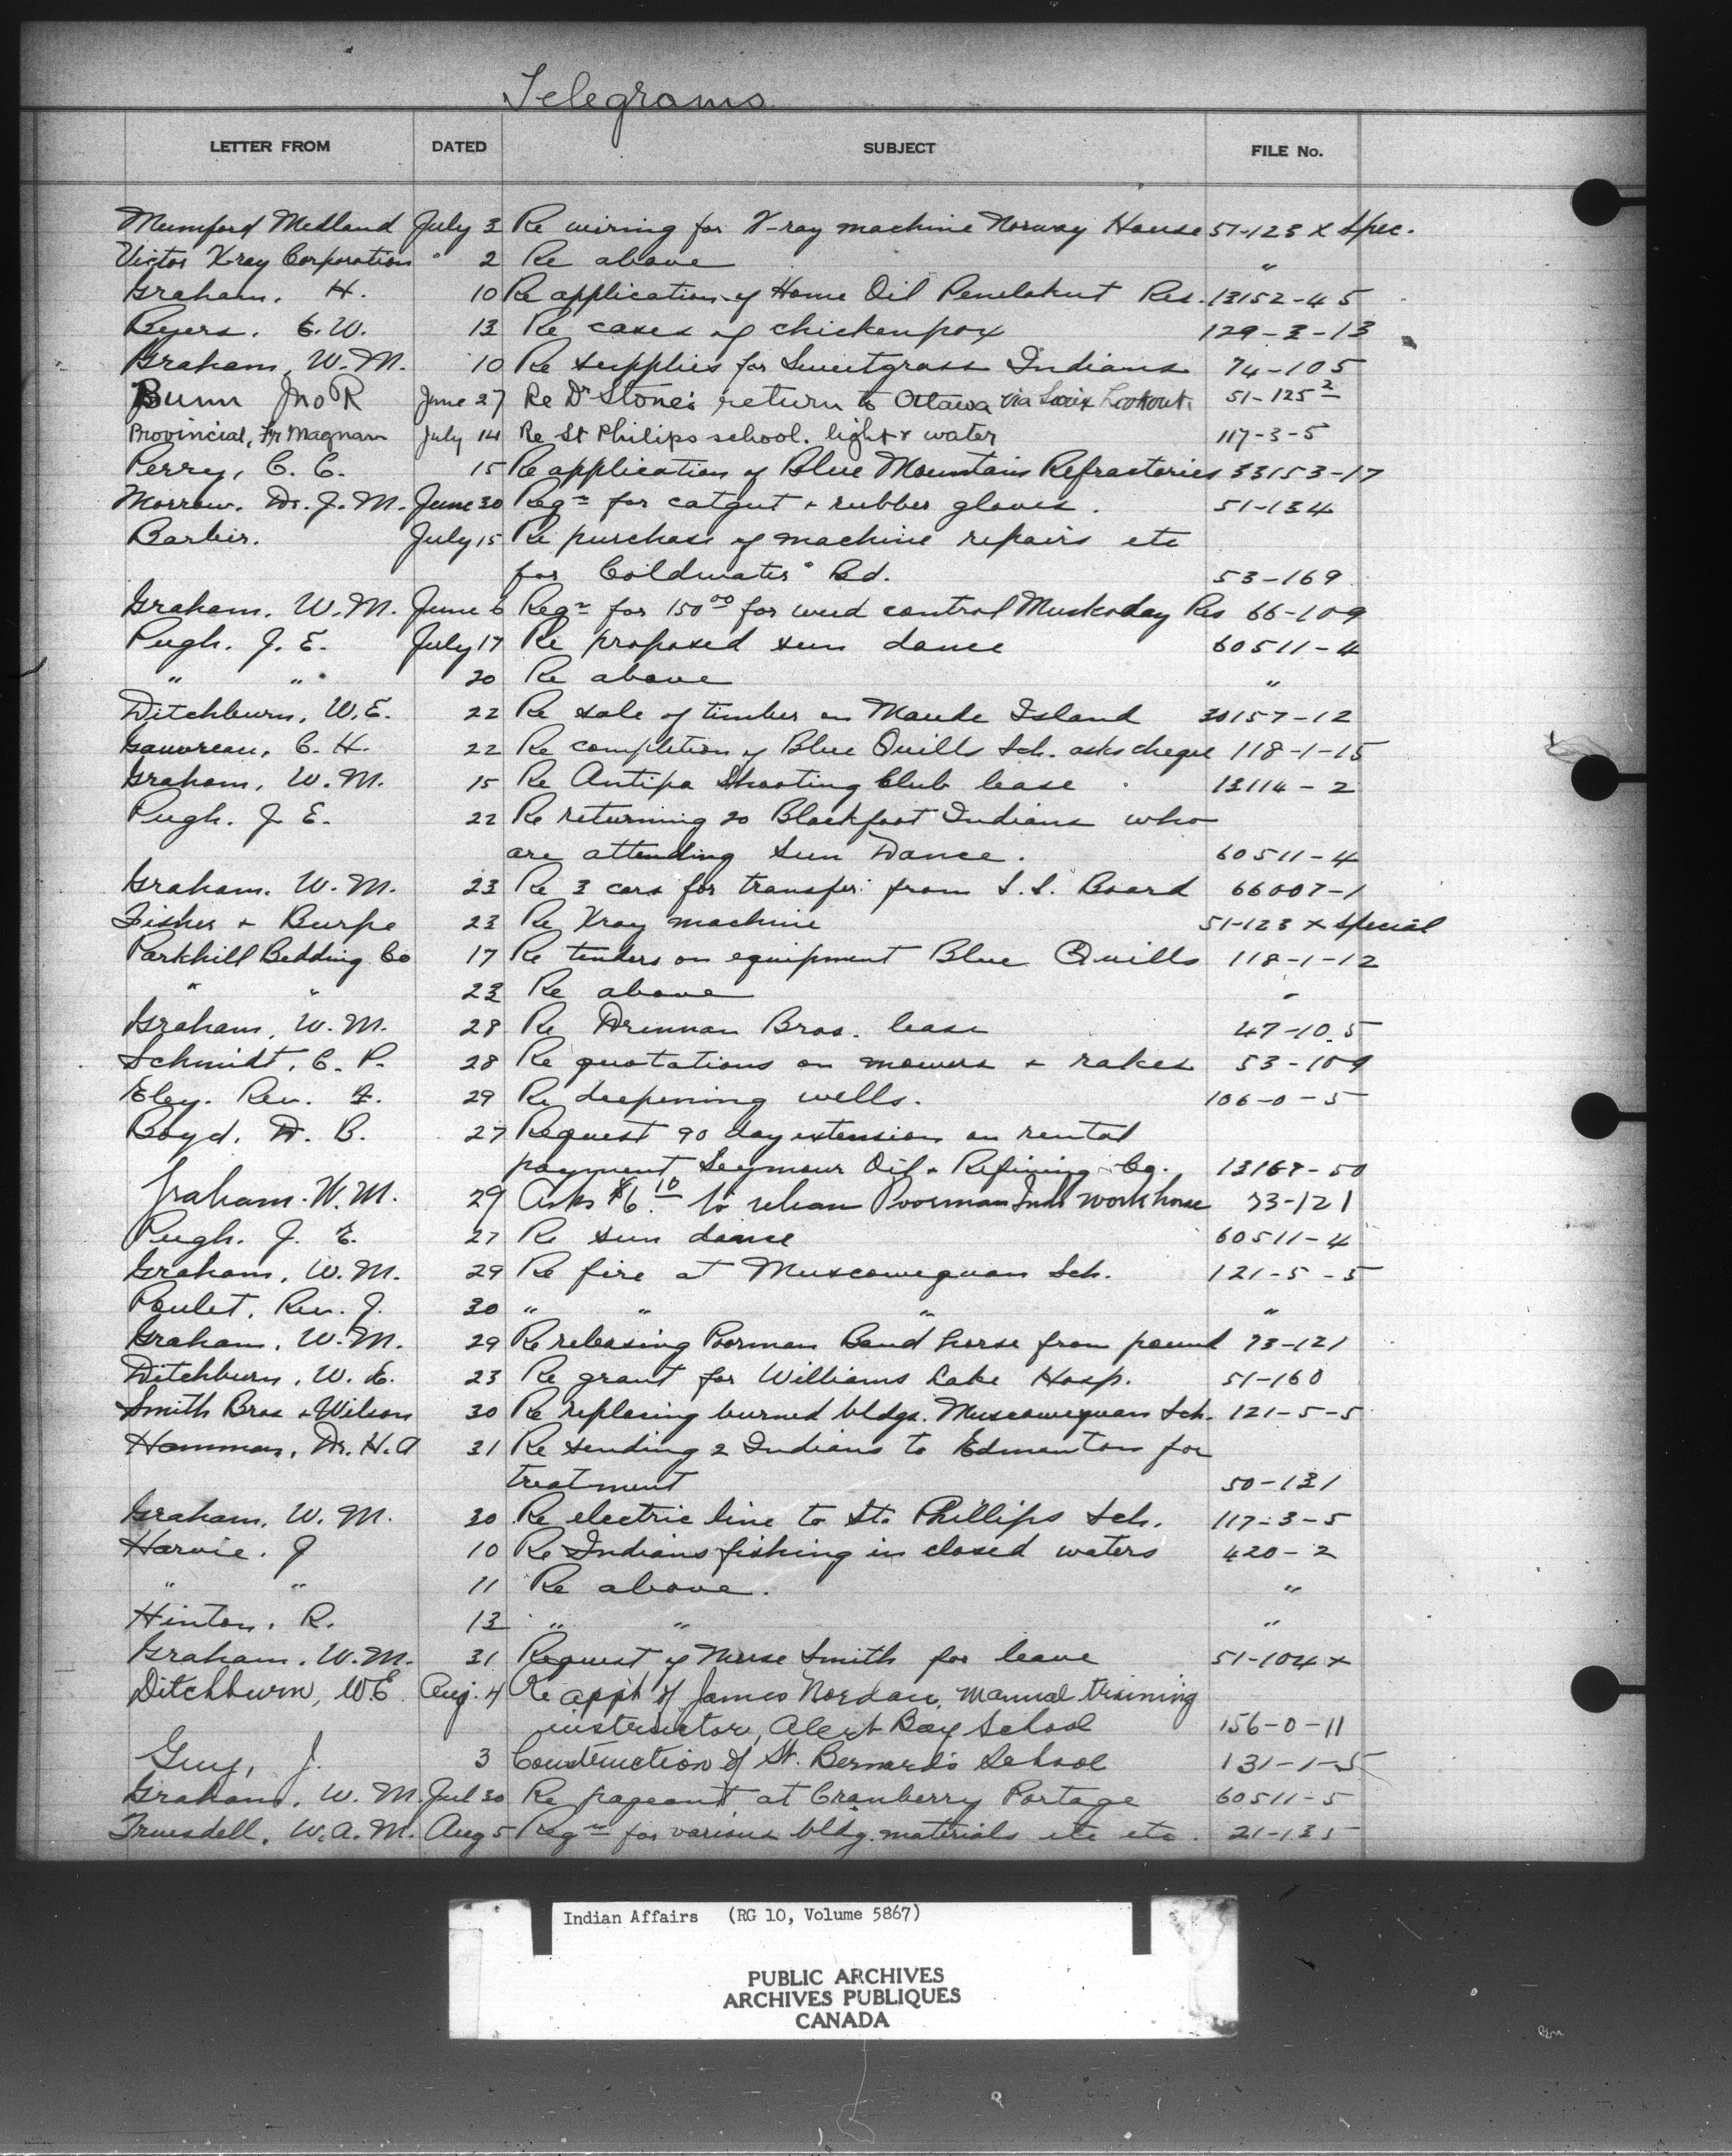 Telegrams
LETTER FROM DATED SUBJECT FILE No.
Mumford Medland July 3 Re wiring for X-ray machine Norway House 51-123 X Spec.
Victor X-ray Corporation " 2 Re above "
Graham, H. 10 Re application of Home Oil Penelakut Res. 13152-45
Byers, E. W. 13 Re cases of chickenpox 129-3-13
Graham, W. M. 10 Re supplies for Sweetgrass Indians 74-105
Bunn Jno R June 27 Re Dr Stone's return to Ottawa via Sioux Lookout 51-125 2
Provincial, Fr Magnan July 14 Re St Philips school. light & water 117-3-5
Perry, C. C. 15 Re application of Blue Mountain Refractories 33153-17
Morrow, Dr. J. M. June 30 Reqn for catgut + rubber gloves. 51-134
Barbir. July 15 Re purchase of machine repairs etc
for Coldwater Bd. 53-169
Graham, W. M. June 6 Reqn for 150 00 for weed control Muskoday Res 66-109
Pugh. J. E. July 17 Re proposed sun dance 60511-4
" " 20 Re above "
Ditchburn, W. E. 22 Re sale of timber on Maude Island 30157-12
Gauvreau, C. H. 22 Re completion of Blue Quills Sch. asks cheque 118-1-15
Graham, W. M. 15 Re Antipa Shooting Club lease 13114-2
Pugh. J. E. 22 Re returning 20 Blackfoot Indians who
are attending Sun Dance. 60511-4
Graham. W. M. 23 Re 3 cars for transfer from S. S. Board 66007-1
Fisher + Burpe 23 Re Xray machine 51-123 X Special
Parkhill Bedding Co 17 Re tenders on equipment Blue Quills 118-1-12
" " 23 Re above "
Graham, W. M. 28 Re Drennan Bros. lease 47-10.5
Schmidt, C. P. 28 Re quotations on mowers + rakes 53-109
Eley. Rev. F. 29 Re deepening wells. 106-0-5
Boyd, D. B. 27 Request 90 day extension on rental
payment Seymour Oil & Refining Co. 13167-50
Graham. W. M. 29 Asks $6.10 to release Poorman Inds work horse 73-121
Pugh. J. E. 27 Re sun dance 60511-4
Graham, W. M. 29 Re fire at Muscowequan Sch. 121-5-5
Poulet, Rev. J. 30 " " " "
Graham, W. M. 29 Re releasing Poorman Band horse from pound 73-121
Ditchburn, W. E. 23 Re grant for Williams Lake Hosp. 51-160
Smith Bros & Wilson 30 Re replacing burned bldgs. Muscowequan Sch. 121-5-5
Hamman, Dr. H. A 31 Re sending 2 Indians to Edmonton for
treatment 50-131
Graham, W. M. 30 Re electric line to St. Phillips Sch. 117-3-5
Harvie. J 10 Re Indians fishing in closed waters 420-2
" " 11 Re above. "
Hinton, R. 13 " " "
Graham. W. M. 31 Request of Nurse Smith for leave 51-104 x
Ditchburn, W E Aug. 4 Re appt of James Nordan, manual training
instructor, Alert Bay School 156-0-11
Guy, J. 3 Construction of St. Bernard's School 131-1-5
Graham, W. M. Jul 30 Re pageant at Cranberry Portage 60511-5
Truesdell, W. A. M. Aug 5 Reqn for various bldg. materials etc etc. 21-135
Indian Affairs (RG 10, Volume 5867)
PUBLIC ARCHIVES
ARCHIVES PUBLIQUES
CANADA